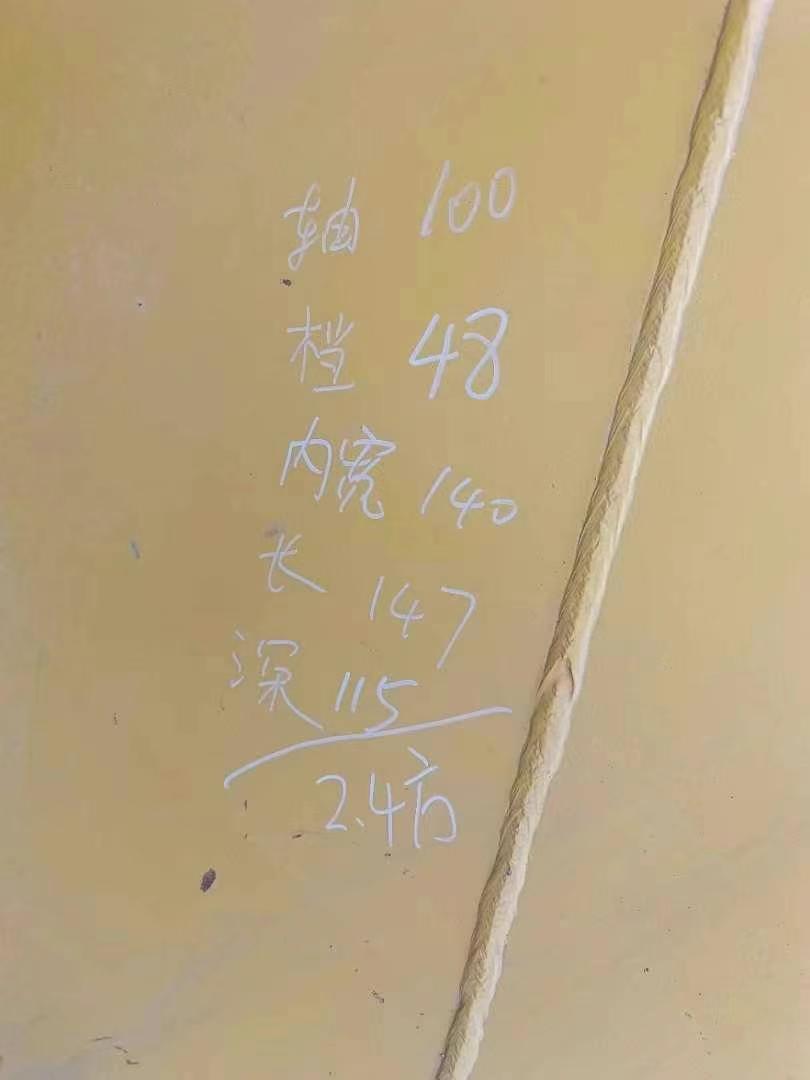 轴 100
档 48
内宽 140
长 147
深 115
2.4方